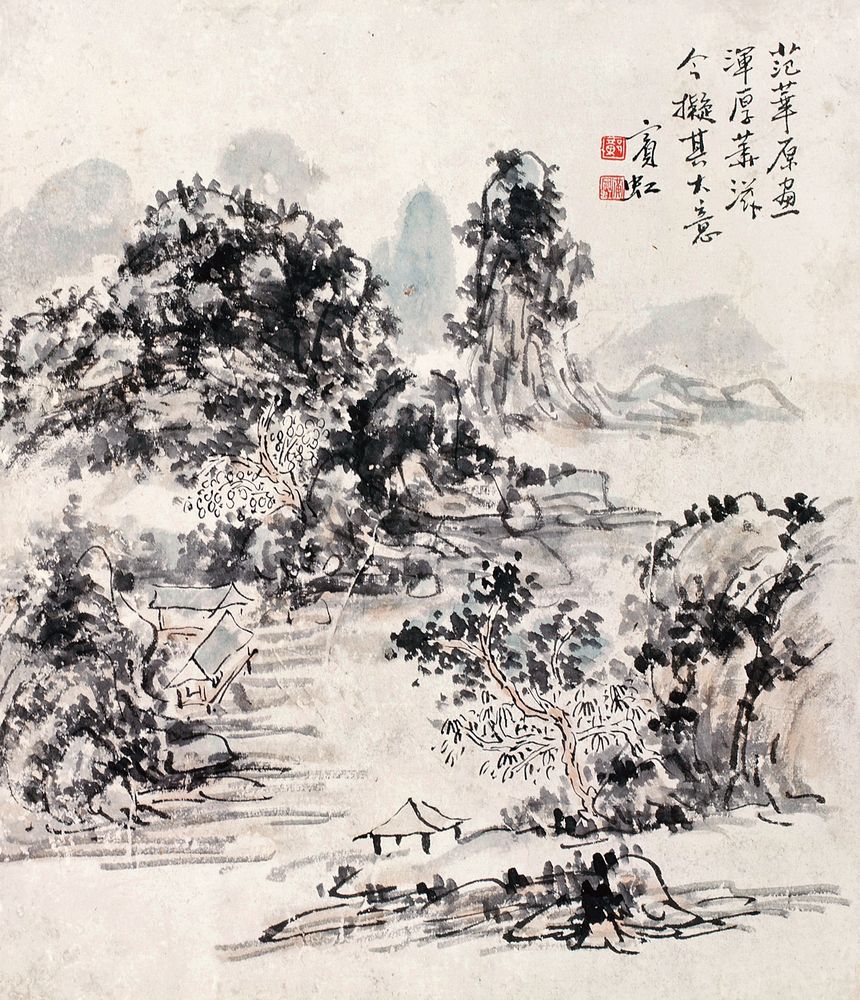 范華原畫
渾厚華滋
今擬其大意
賓虹